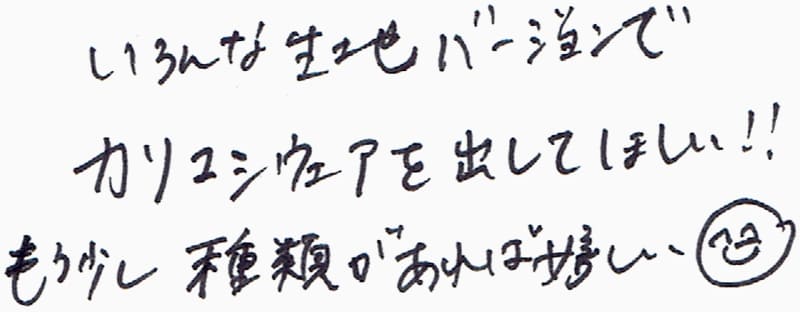 いろんな生地バージョンで
カリユシウェアを出してほしい!!
もう少し種類があれば嬉しい